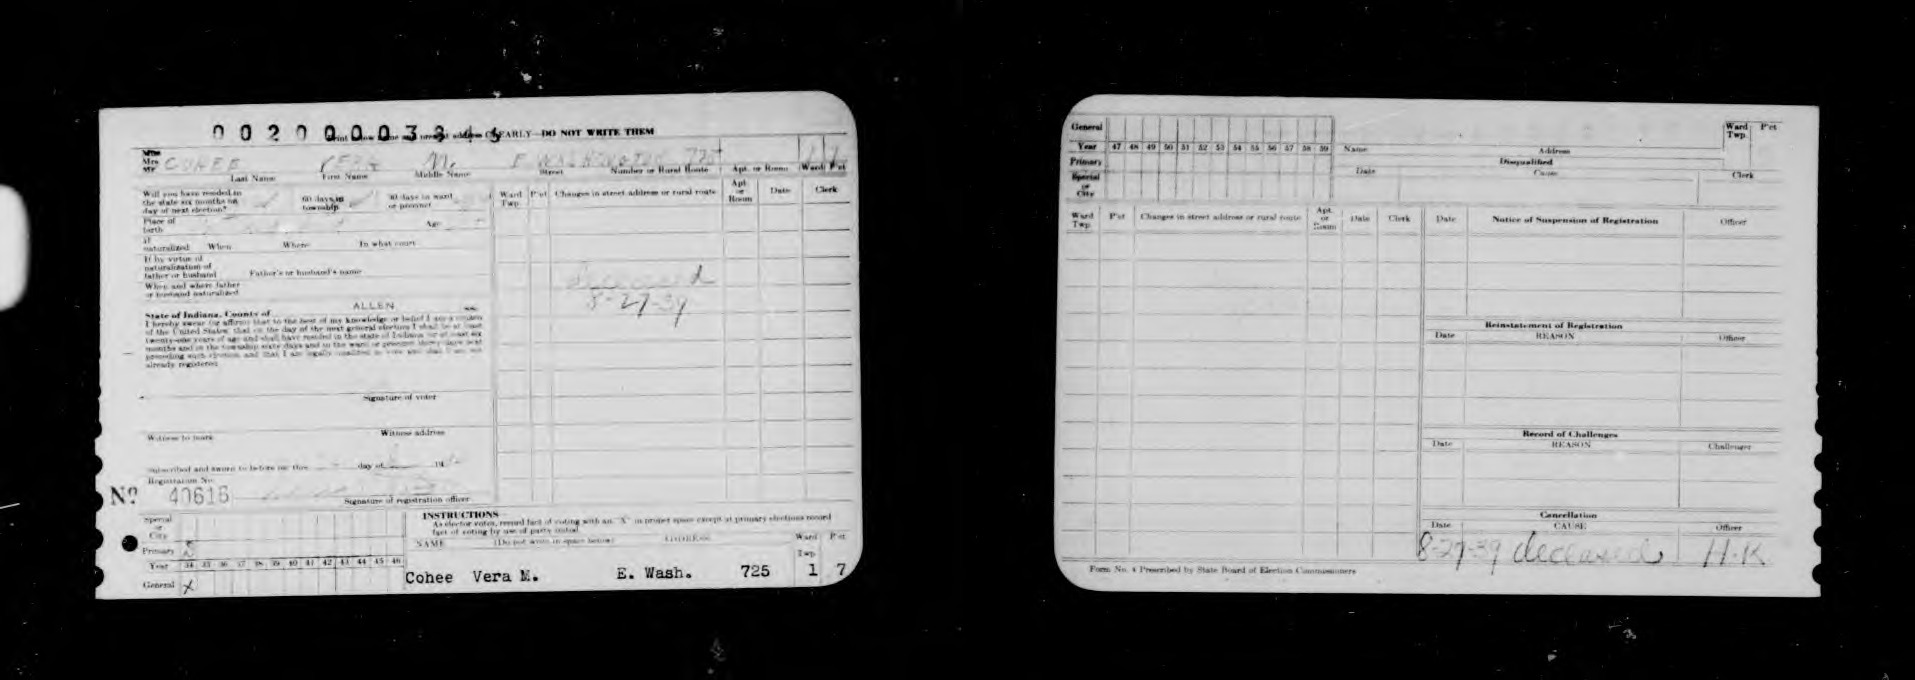 0 0 2 0 0 0 0 3 3 4 5
CLEARLY—DO NOT WRITE THEM
Mrs. COHEE VERA M. E WASHINGTON 725 1 7
Mr.
Last Name First Name Middle Name Street Number or Rural Route Apt. or Room Ward P'ct
Will you have resided in
the state six months on
day of next election?
60 days in
township
30 days in ward
or precinct
Ward
Twp.
P'ct
Changes in street address or rural route
Apt.
or
Room
Date
Clerk
Place of
birth
Age
If
naturalized When Where In what court
If by virtue of
naturalization of
father or husband Father's or husband's name
When and where father
or husband naturalized
deceased
8-27-39
ALLEN
State of Indiana, County of ss:
I hereby swear (or affirm) that to the best of my knowledge or belief I am a citizen
of the United States, that on the day of the next general election I shall be at least
twenty-one years of age and shall have resided in the state of Indiana for at least six
months and in the township sixty days and in the ward or precinct thirty days next
preceding such election, and that I am legally qualified to vote and that I am not
already registered.
Signature of voter
Witness to mark Witness address
Subscribed and sworn to before me this day of 19
Registration No.
Nº 40616
Signature of registration officer
Special
or
City
Primary
Year 34 35 36 37 38 39 40 41 42 43 44 45 46
General X
INSTRUCTIONS—
As elector votes, record fact of voting with an "X" in proper space except at primary elections record
fact of voting by use of party initial.
NAME (Do not write in space below) ADDRESS Ward
Twp.
P'ct
Cohee Vera M. E. Wash. 725 1 7
General
Year 47 48 49 50 51 52 53 54 55 56 57 58 59
Primary
Special
or
City
Name Address
Ward
Twp.
P'ct
Disqualified
Date Cause Clerk
Ward
Twp.
P'ct
Changes in street address or rural route
Apt.
or
Room
Date
Clerk
Date Notice of Suspension of Registration Officer
Reinstatement of Registration
Date REASON Officer
Record of Challenges
Date REASON Challenger
Cancellation
Date CAUSE Officer
8-27-39 deceased H-K
Form No. 4 Prescribed by State Board of Election Commissioners